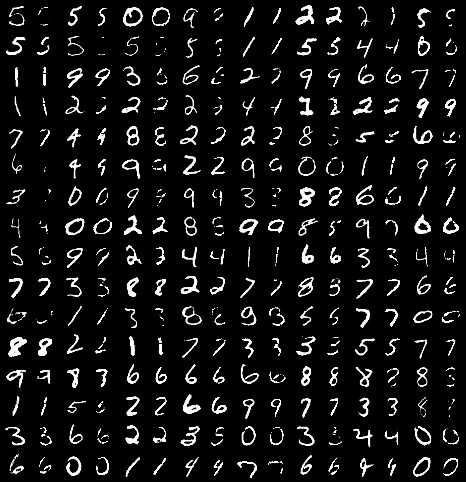 5 5 5 5 0 0 9 1 1 2 2 2 1 5 5
5 5 5 5 5 5 1 1 5 5 4 4 0 0
1 1 9 9 3 3 6 6 2 2 9 9 6 6 7 7
1 1 2 2 2 2 2 4 4 1 2 2 9 9
7 7 4 4 8 8 2 2 2 2 8 5 6
6 4 4 9 2 2 9 9 0 0 1 1 9 9
3 0 0 9 9 9 9 3 3 8 8 6 6 1 1
4 4 0 0 2 2 8 8 9 9 8 5 9 0 0
5 5 9 9 2 3 4 4 1 1 6 6 3 3 4 4
7 7 3 3 8 8 2 2 7 7 8 3 7 7 6 6
1 1 3 3 8 8 9 3 5 5 7 7 0 0
8 8 2 2 1 1 7 7 3 3 3 3 5 5 7 7
9 9 8 3 6 6 6 6 6 6 8 8 8 8 8
1 1 5 2 2 6 6 9 9 7 7 3 3 8
3 3 6 6 2 2 3 5 0 0 3 3 4 4 0 0
6 6 0 0 1 1 4 4 7 7 6 6 4 0 0